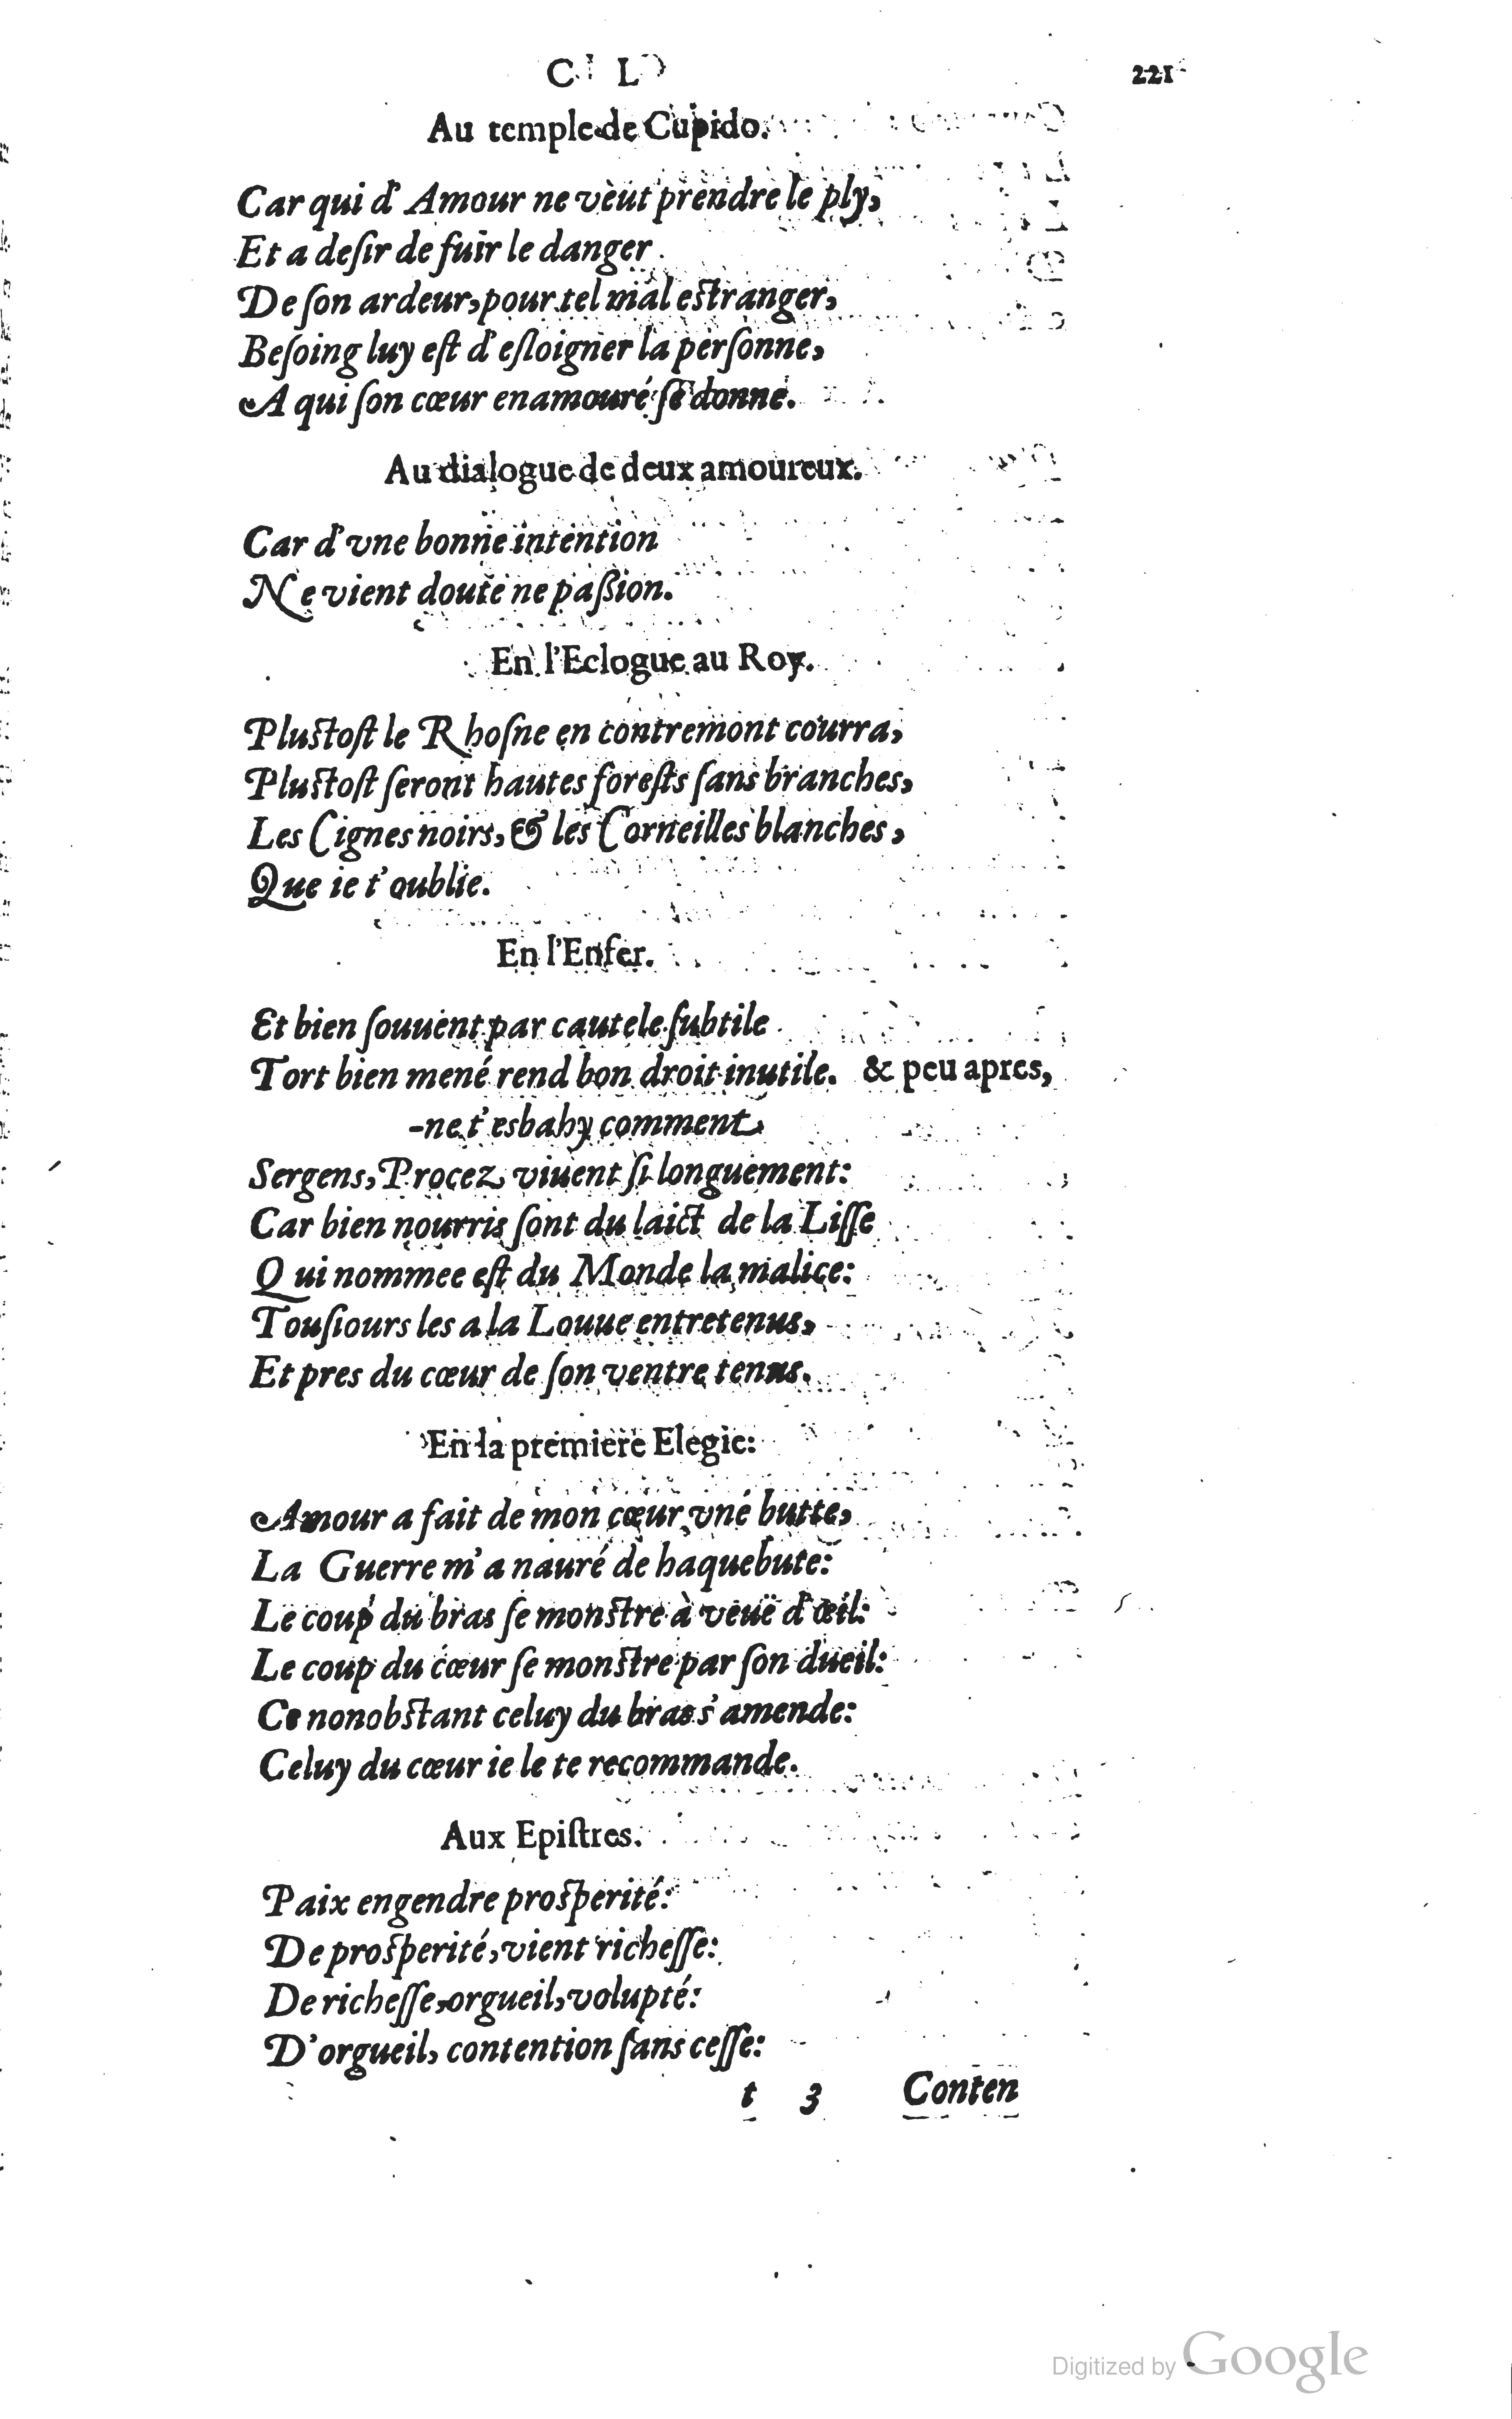 C L 221
Au temple de Cupido.
Car qui d'Amour ne veut prendre le ply,
Et a deſir de fuir le danger
De ſon ardeur, pour tel mal eſtranger,
Beſoing luy eſt d'eſloigner la perſonne,
A qui ſon cœur enamouré ſe donne.
Au dialogue de deux amoureux.
Car d'vne bonne intention
Ne vient doute ne paſsion.
En l'Eclogue au Roy.
Pluſtoſt le Rhoſne en contremont courra,
Pluſtoſt ſeront hautes foreſts ſans branches,
Les Cignes noirs, & les Corneilles blanches,
Que ie t'oublie.
En l'Enfer.
Et bien ſouuent par cautele ſubtile
Tort bien mené rend bon droit inutile. & peu apres,
-ne t'esbahy comment
Sergens, Procez viuent ſi longuement:
Car bien nourris ſont du laict de la Liſſe
Qui nommee eſt du Monde la malice:
Touſiours les a la Louue entretenus,
Et pres du cœur de ſon ventre tenus.
En la premiere Elegie:
Amour a fait de mon cœur vne butte,
La Guerre m'a nauré de haquebute:
Le coup du bras ſe monſtre à veuë d'œil:
Le coup du cœur ſe monſtre par ſon dueil:
Ce nonobſtant celuy du bras s'amende:
Celuy du cœur ie le te recommande.
Aux Epiſtres.
Paix engendre proſperité:
De proſperité, vient richeſſe:
De richeſſe, orgueil, volupté:
D'orgueil, contention ſans ceſſe:
t 3 Conten
Digitized by Google